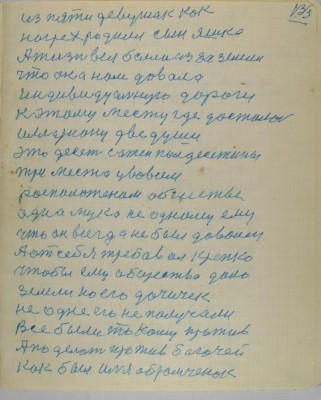 133
из пяти девушак как
нагрех родился сын яшка
А жизть вся была из за земли
что она нам довала
индивидуалную дорогу
к этому месту где досталос
илл ункому две души
это десет сажен пол десетины
три места у всем
росположенам обществе
одна мука не одному ему
что он всегда не был доволен
А от себя требавал крепко
чтобы ему общества дало
земли но его дочичек
не одне его не получали
Все были такому против
А по делам против богачей
как был имя абрамченок